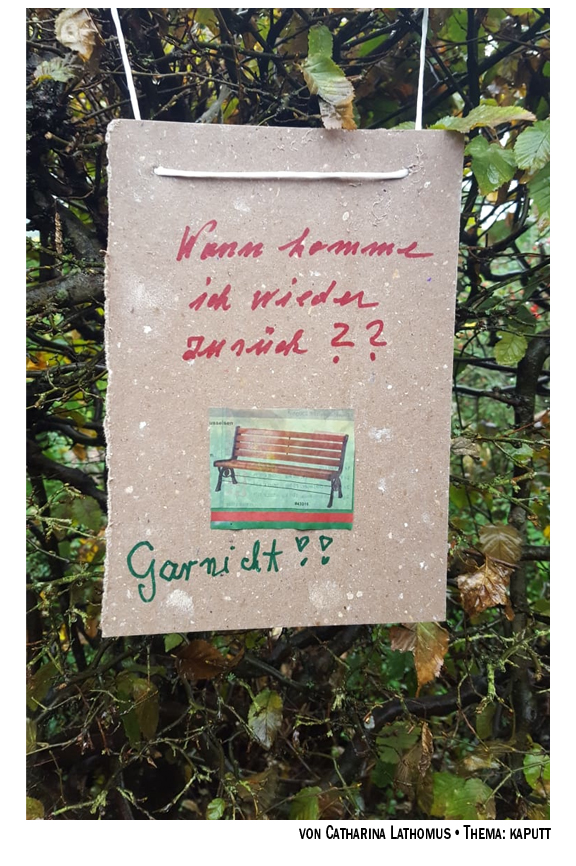 Wann komme
ich wieder
zurück ??
Garnicht !!
von Catharina Lathomus • Thema: kaputt